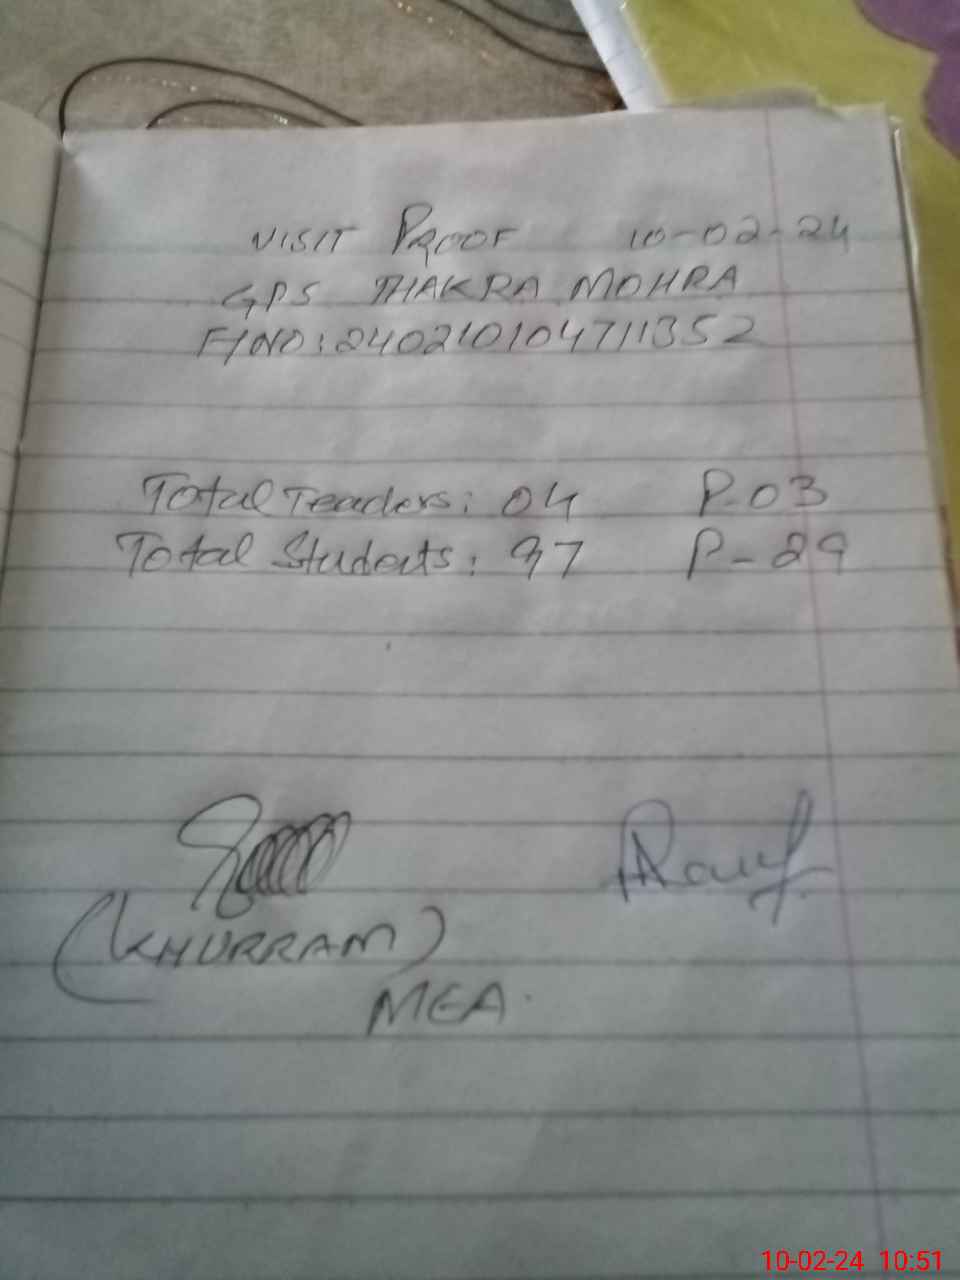 VISIT PROOF 10-02-24
GPS THAKRA MOHRA
F/NO: 240210104711352
Total Teachers: 04 P-03
Total Students: 37 P-29
Rauf
(KHURRAM)
MEA.
10-02-24 10:51